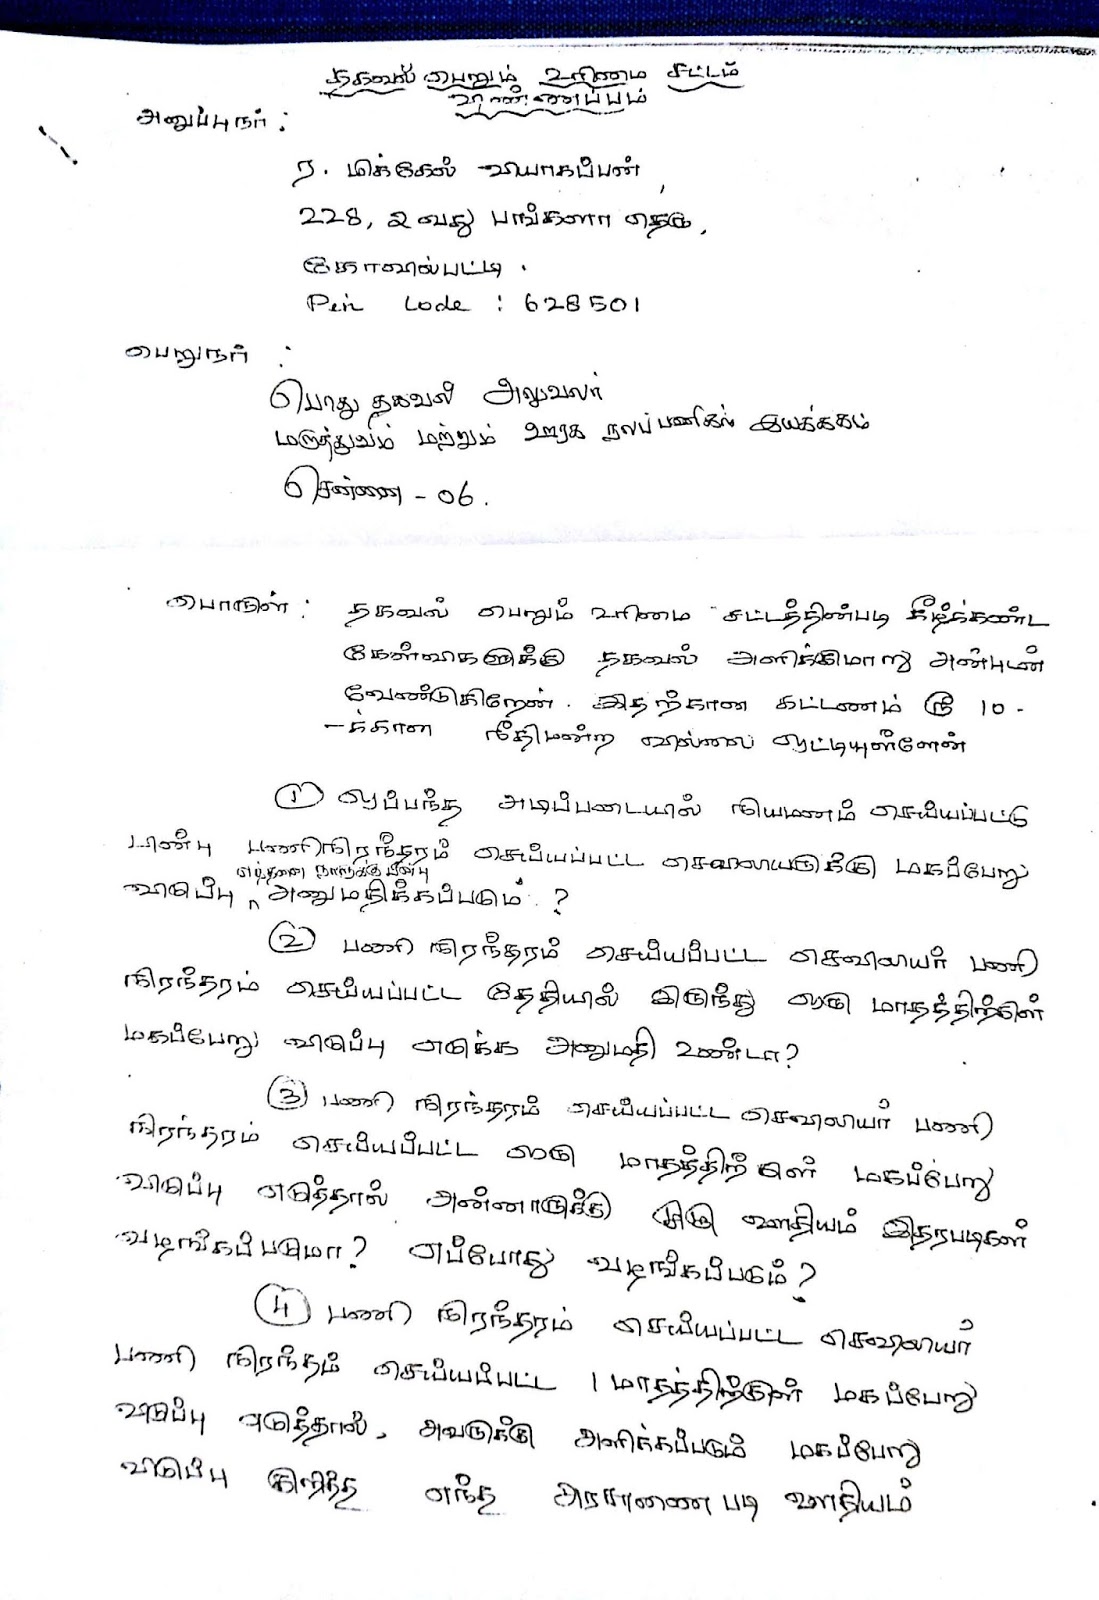 தகவல் பெறும் உரிமை சட்டம்
விண்ணப்பம்
அனுப்புநர் :
ர. மிக்கேல் வியாகப்பன்,
228, 2 வது பங்களா தெரு,
கோவில்பட்டி.
Pin Code : 628501
பெறுநர் :
பொது தகவல் அலுவலர்
மருத்துவம் மற்றும் ஊரக நலப்பணிகள் இயக்ககம்
சென்னை - 06.
பொருள் : தகவல் பெறும் உரிமை சட்டத்தின்படி கீழ்க்கண்ட
கேள்விகளுக்கு தகவல் அளிக்குமாறு அன்புடன்
வேண்டுகிறேன். இதற்கான கட்டணம் ரூ 10 -
-க்கான நீதிமன்ற வில்லை ஒட்டியுள்ளேன்
① ஒப்பந்த அடிப்படையில் நியமணம் செய்யப்பட்டு
பின்பு பணிநிரந்தரம் செய்யப்பட்ட செவிலியருக்கு மகப்பேறு
எத்தனை நாளுக்கு பின்பு
விடுப்பு ^ அனுமதிக்கப்படும் ?
② பணி நிரந்தரம் செய்யப்பட்ட செவிலியர் பணி
நிரந்தரம் செய்யப்பட்ட தேதியில் இருந்து ஒரு மாதத்திற்குள்
மகப்பேறு விடுப்பு எடுக்க அனுமதி உண்டா?
③ பணி நிரந்தரம் செய்யப்பட்ட செவிலியர் பணி
நிரந்தரம் செய்யப்பட்ட ஒரு மாதத்திற்குள் மகப்பேறு
விடுப்பு எடுத்தால் அன்னாருக்கு ஊதியம் இதரபடிகள்
வழங்கப்படுமா? எப்போது வழங்கப்படும்?
④ பணி நிரந்தரம் செய்யப்பட்ட செவிலியர்
பணி நிரந்தம் செய்யப்பட்ட 1 மாதத்திற்குள் மகப்பேறு
விடுப்பு எடுத்தால், அவருக்கு அளிக்கப்படும் மகப்பேறு
விடுப்பு குறித்த எந்த அரசாணை படி ஊதியம்